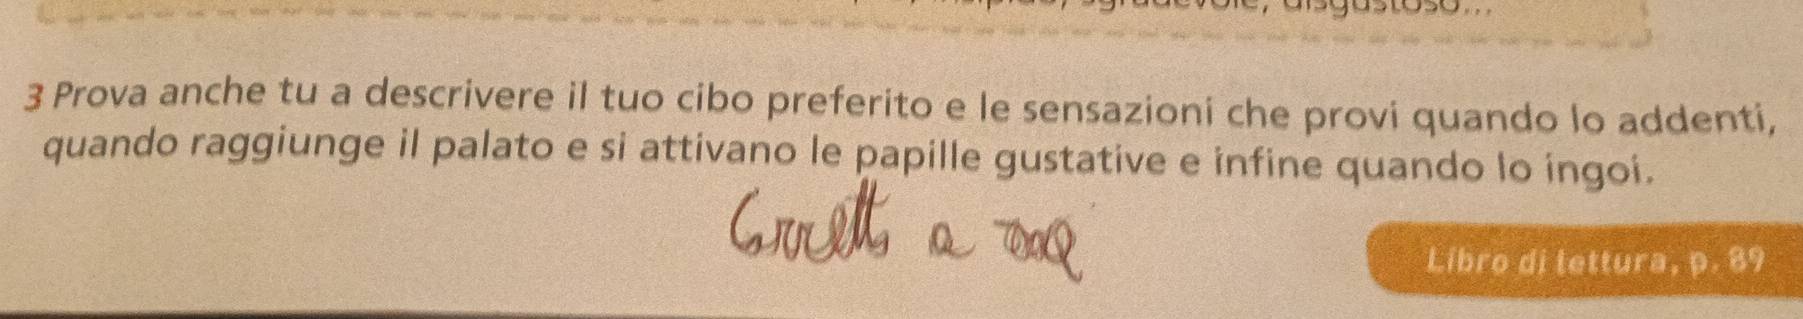 disgustoso...
3 Prova anche tu a descrivere il tuo cibo preferito e le sensazioni che provi quando lo addenti,
quando raggiunge il palato e si attivano le papille gustative e infine quando lo ingoi.
a
Libro di lettura, p. 89